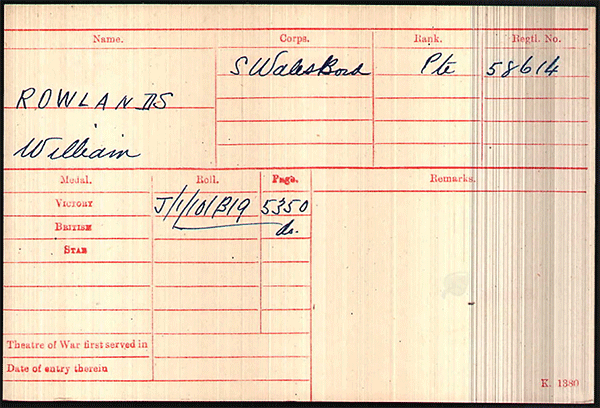 Name. Corps. Rank. Regtl. No.
S Wales Bord Pte 58614
ROWLANDS
William
Medal. Roll. Page. Remarks.
VICTORY J/1/101B19 5350
BRITISH do.
STAR
Theatre of War first served in
Date of entry therein
K. 1380